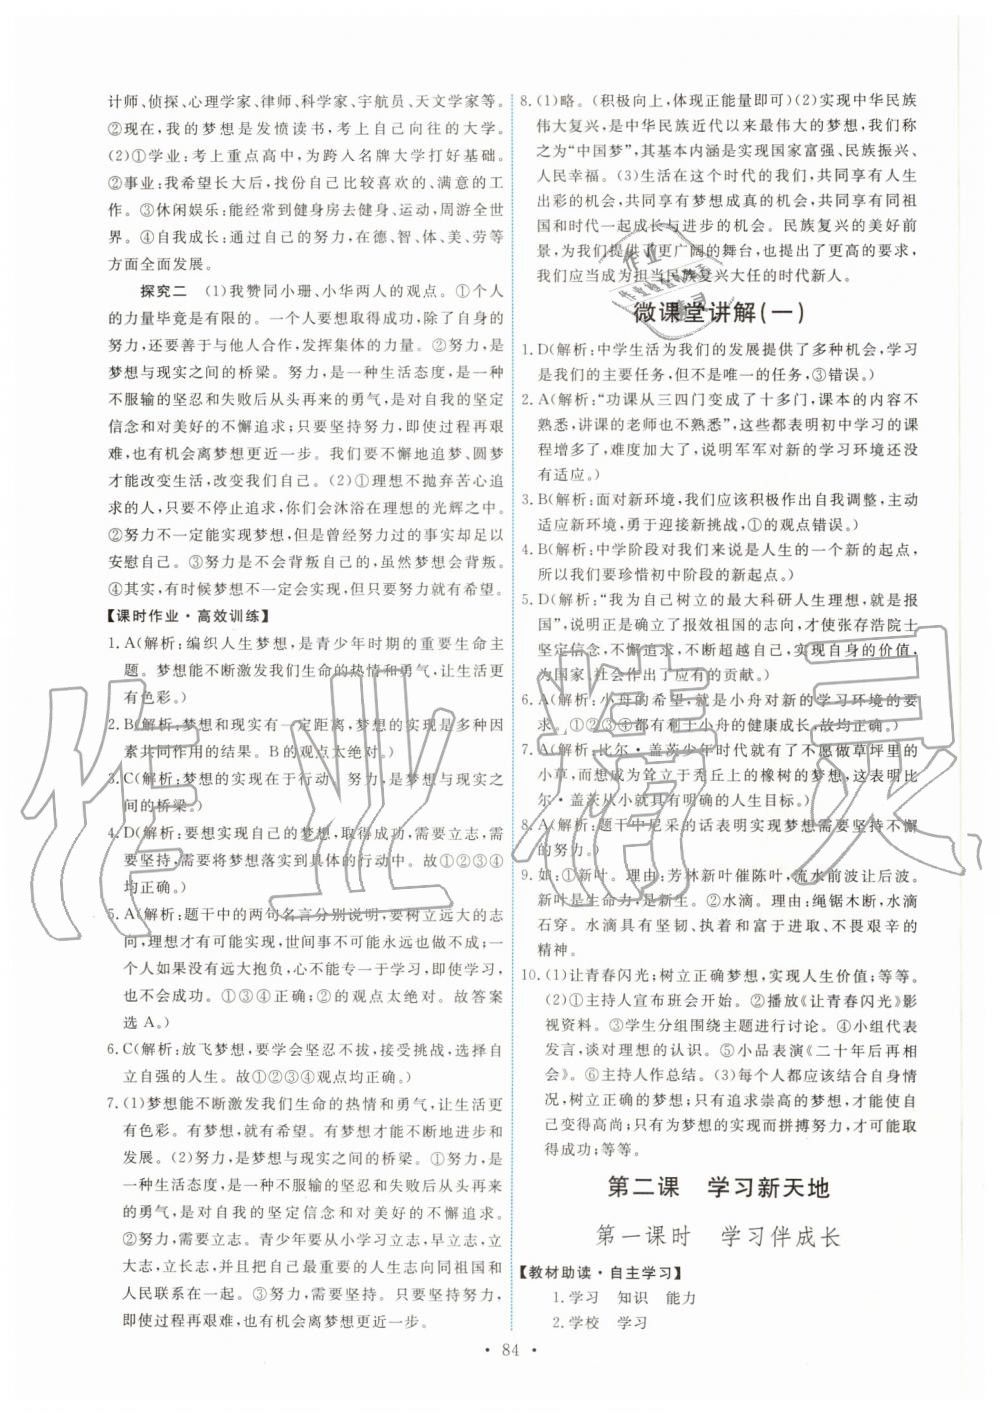 计师、侦探、心理学家、律师、科学家、宇航员、天文学家等。
②现在,我的梦想是发愤读书,考上自己向往的大学。
(2)①学业:考上重点高中,为跨入名牌大学打好基础。
②事业:我希望长大后,找份自己比较喜欢的、满意的工
作。③休闲娱乐:能经常到健身房去健身、运动,周游全世
界。④自我成长:通过自己的努力,在德、智、体、美、劳等
方面全面发展。
探究二 (1)我赞同小珊、小华两人的观点。①个人
的力量毕竟是有限的。一个人要想取得成功,除了自身的
努力,还要善于与他人合作,发挥集体的力量。②努力,是
梦想与现实之间的桥梁。努力,是一种生活态度,是一种
不服输的坚忍和失败后从头再来的勇气,是对自我的坚定
信念和对美好的不懈追求;只要坚持努力,即使过程再艰
难,也有机会离梦想更近一步。我们要不懈地追梦、圆梦
才能改变生活,改变我们自己。(2)①理想不抛弃苦心追
求的人,只要不停止追求,你们会沐浴在理想的光辉之中。
②努力不一定能实现梦想,但是曾经努力过的事实却足以
安慰自己。③努力是不会背叛自己的,虽然梦想会背叛。
④其实,有时候梦想不一定会实现,但只要努力就有希望。
【课时作业·高效训练】
1. A(解析:编织人生梦想,是青少年时期的重要生命主
题。梦想能不断激发我们生命的热情和勇气,让生活更
有色彩。)
2. B(解析:梦想和现实有一定距离,梦想的实现是多种因
素共同作用的结果。B的观点太绝对。)
3. C(解析:梦想的实现在于行动,努力,是梦想与现实之
间的桥梁。)
4. D(解析:要想实现自己的梦想,取得成功,需要立志,需
要坚持,需要将梦想落实到具体的行动中。故①②③④
均正确。)
5. A(解析:题干中的两句名言分别说明,要树立远大的志
向,理想才可能实现,世间事不可能永远也做不成;一
个人如果没有远大抱负,心不能专一于学习,即使学习,
也不会成功。①③④正确;②的观点太绝对。故答案
选A。)
6. C(解析:放飞梦想,要学会坚忍不拔,接受挑战,选择自
立自强的人生。故①②③④观点均正确。)
7. (1)梦想能不断激发我们生命的热情和勇气,让生活更
有色彩。有梦想,就有希望。有梦想才能不断地进步和
发展。(2)努力,是梦想与现实之间的桥梁。①努力,是
一种生活态度,是一种不服输的坚忍和失败后从头再来
的勇气,是对自我的坚定信念和对美好的不懈追求。
②努力,需要立志。青少年要从小学习立志,早立志,立
大志,立长志,并且把自己的人生志向同祖国和
人民联系在一起。③努力,需要坚持。只要坚持努力,
即使过程再艰难,也有机会离梦想更近一步。
8. (1)略。(积极向上,体现正能量即可)(2)实现中华民族
伟大复兴,是中华民族近代以来最伟大的梦想,我们称
之为“中国梦”,其基本内涵是实现国家富强、民族振兴、
人民幸福。(3)生活在这个时代的我们,共同享有人生出
彩的机会,共同享有梦想成真的机会,共同享有同祖
国和时代一起成长与进步的机会。民族复兴的美好前
景,为我们提供了更广阔的舞台,也提出了更高的要求,
我们应当成为担当民族复兴大任的时代新人。
微课堂讲解(一)
1. D(解析:中学生活为我们的发展提供了多种机会,学习
是我们的主要任务,但不是唯一的任务,③错误。)
2. A(解析:“功课从三四门变成了十多门,课本的内容不
熟悉,讲课的老师也不熟悉”,这些都表明初中学习的课
程增多了,难度加大了,说明军军对新的学习环境还没
有适应。)
3. B(解析:面对新环境,我们应该积极作出自我调整,主动
适应新环境,勇于迎接新挑战,①的观点错误。)
4. B(解析:中学阶段对我们来说是人生的一个新的起点,
所以我们要珍惜初中阶段的新起点。)
5. D(解析:“我为自己树立的最大科研人生理想,就是报
国”,说明正是确立了报效祖国的志向,才使张存浩院士
坚定信念,不懈追求,不断超越自己,实现自身的价值,
为国家、社会作出了应有的贡献。)
6. A(解析:小舟的希望,就是小舟对新的学习环境的要
求。①②③④都有利于小舟的健康成长,故均正确。)
7. A(解析:比尔·盖茨少年时代就有了不愿做草坪里的
小草,而想成为耸立于秃丘上的橡树的梦想,这表明比
尔·盖茨从小就具有明确的人生目标。)
8. A(解析:题干中尼采的话表明实现梦想需要坚持不懈
的努力。)
9. 如:①新叶。理由:芳林新叶催陈叶,流水前波让后波。
新叶是生命力,是新生。②水滴。理由:绳锯木断,水滴
石穿。水滴具有坚韧、执着和富于进取、不畏艰辛的
精神。
10. (1)让青春闪光;树立正确梦想,实现人生价值;等等。
(2)①主持人宣布班会开始。②播放《让青春闪光》影
视资料。③学生分组围绕主题进行讨论。④小组代表
发言,谈对理想的认识。⑤小品表演《二十年后再相
会》。⑥主持人作总结。(3)每个人都应该结合自身情
况,树立正确的梦想;只有追求崇高的梦想,才能使自
己变得高尚;只有为梦想的实现而拼搏努力,才可能取
得成功;等等。
第二课 学习新天地
第一课时 学习伴成长
【教材助读·自主学习】
1. 学习 知识 能力
2. 学校 学习
• 84 •
作业精灵